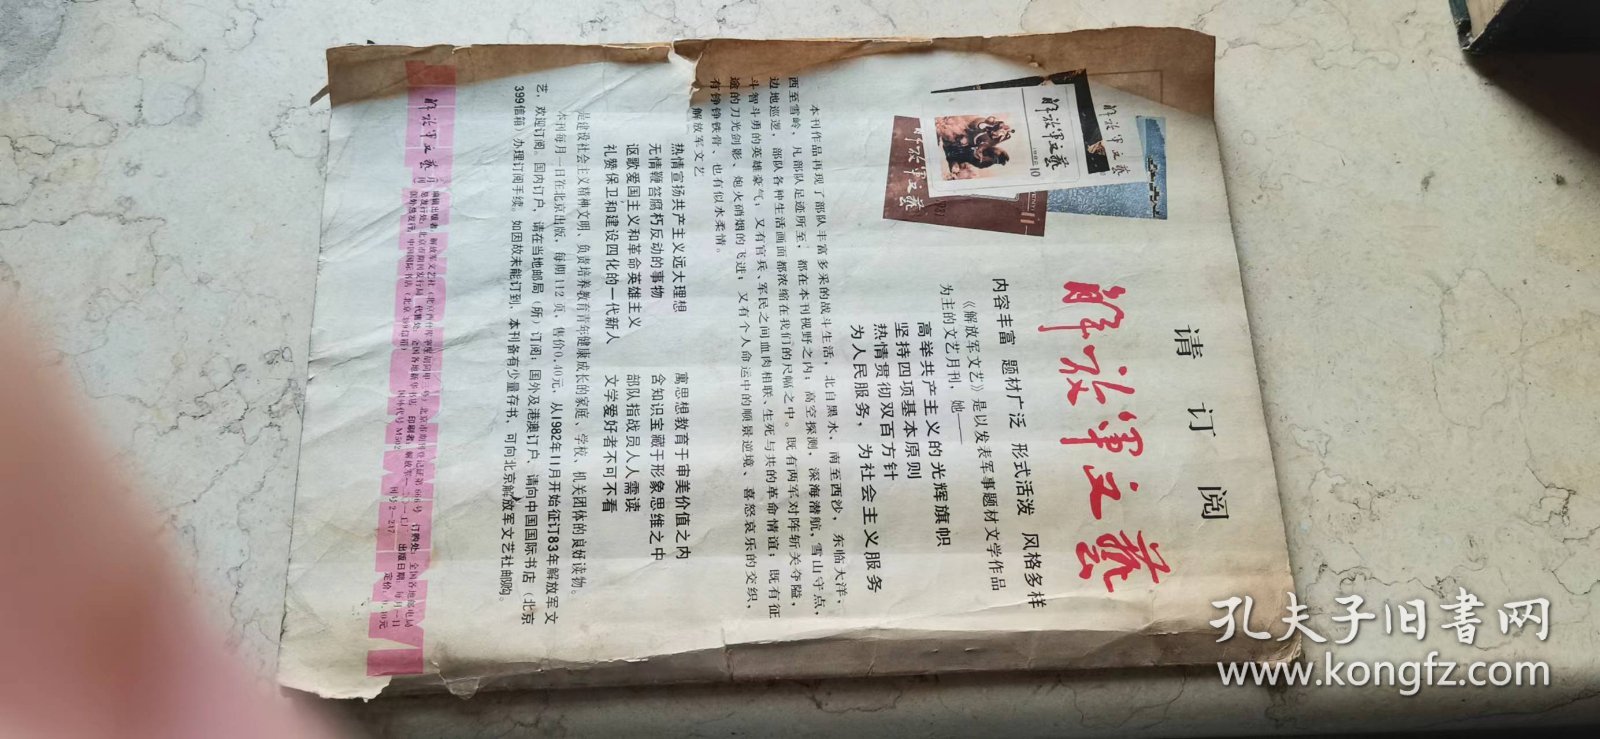 请订阅
解放军文艺
内容丰富 题材广泛 形式活泼 风格多样
《解放军文艺》是以发表军事题材文学作品
为主的文艺月刊，她——
高举共产主义的光辉旗帜
坚持四项基本原则
热情贯彻双百方针
为人民服务，为社会主义服务
解放军文艺
解放军文艺
10
解放军文艺
11
本刊作品再现了部队丰富多采的战斗生活，北自黑水，南至西沙，东临大洋，
西至雪岭，凡部队足迹所至，都在本刊视野之内；高空探测，深海潜航，雪山守点，
边地巡逻，部队各种生活画面都浓缩在我们的尺幅之中。既有两军对阵斩关夺隘，
斗智斗勇的英雄豪气；又有官兵、军民之间血肉相联、生死与共的革命情谊；既有征
途的刀光剑影、炮火硝烟的飞进；又有个人命运中的顺景逆境、喜怒哀乐的交织，
有铮铮铁骨，也有似水柔情。
解放军文艺
热情宣扬共产主义远大理想 寓思想教育于审美价值之内
无情鞭笞腐朽反动的事物 含知识宝藏于形象思维之中
讴歌爱国主义和革命英雄主义 部队指战员人人需读
礼赞保卫和建设四化的一代新人 文学爱好者不可不看
是建设社会主义精神文明、负责培养教育青年健康成长的家庭、学校、机关团体的良好读物。
本刊每月一日在北京出版，每期112页，售价0.40元，从1982年11月开始征订83年解放军文
艺，欢迎订阅。国内订户，请在当地邮局（所）订阅；国外及港澳订户，请向中国国际书店（北京
399信箱）办理订阅手续。如因故未能订到，本刊备有少量存书，可向北京解放军文艺社邮购。
解放军文艺 月刊
编辑出版者：解放军文艺社
北京市期刊登记证第666号 订购处：全国各地邮电局
总发行处：北京市报刊发行局 代售处：全国各地新华书店
出版日期：每月一日
国外总发行：中国国际书店（北京399信箱） 国外代号 M502
刊号2-247 定价：0.40元
孔夫子旧书网
www.kongfz.com